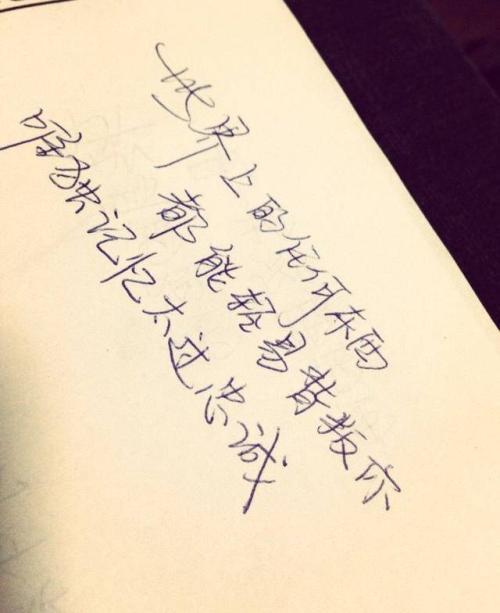 世界上的任何东西
都能轻易背叛你
唯独记忆太过忠诚